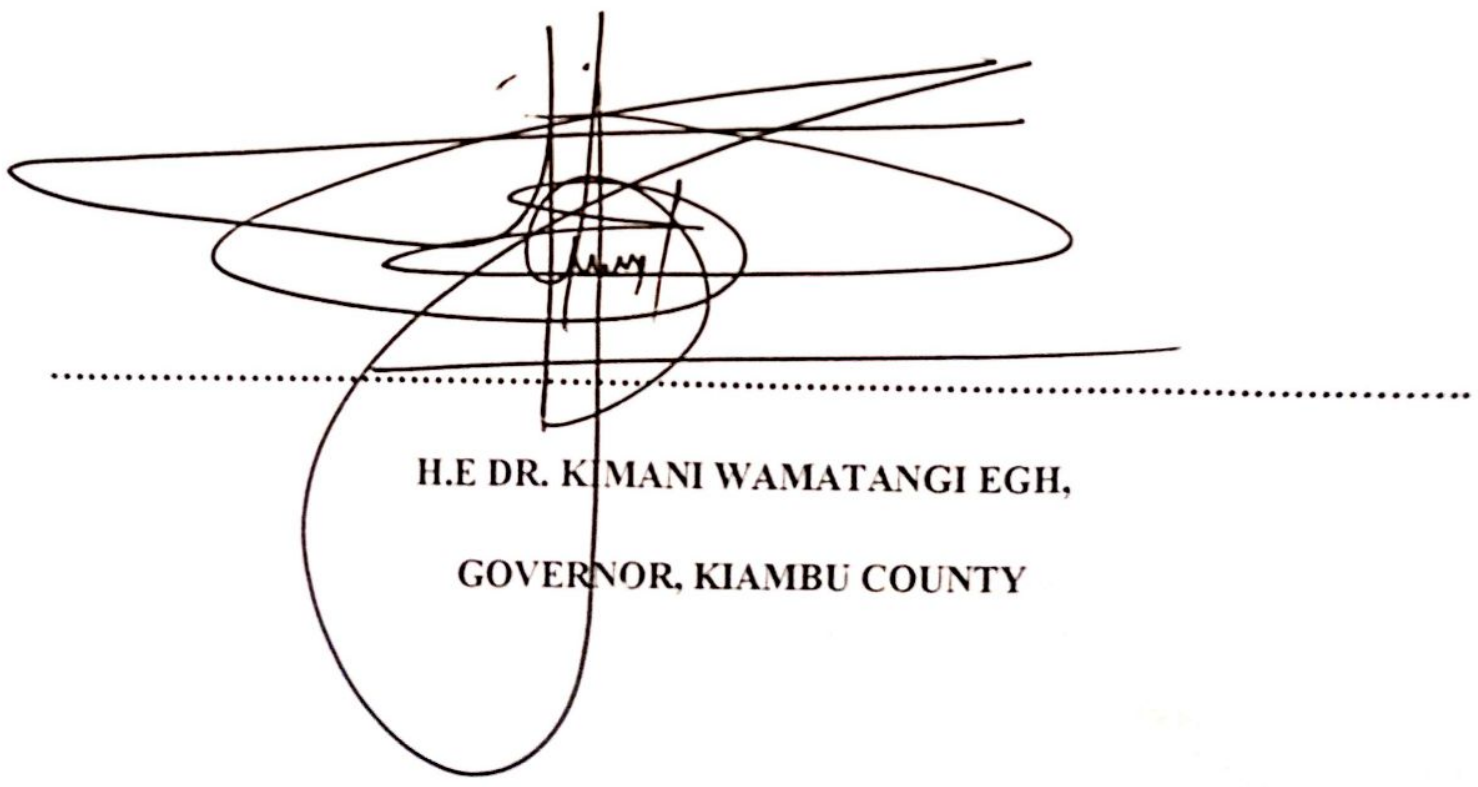 H.E DR. KIMANI WAMATANGI EGH,
GOVERNOR, KIAMBU COUNTY